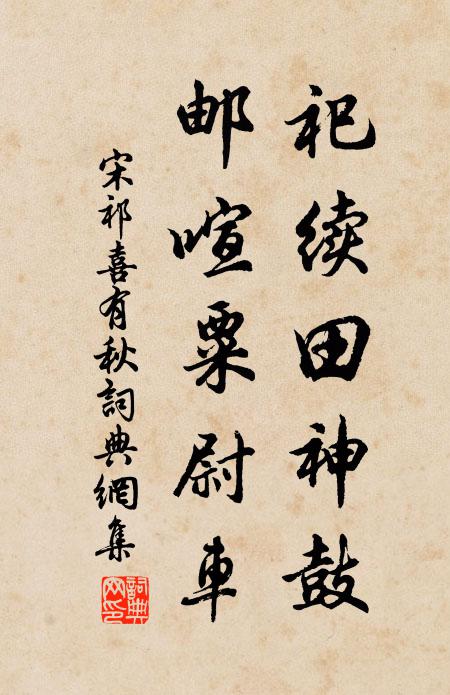 祀续田神鼓
邮喧粟尉車
宋祁喜有秋詞典網集